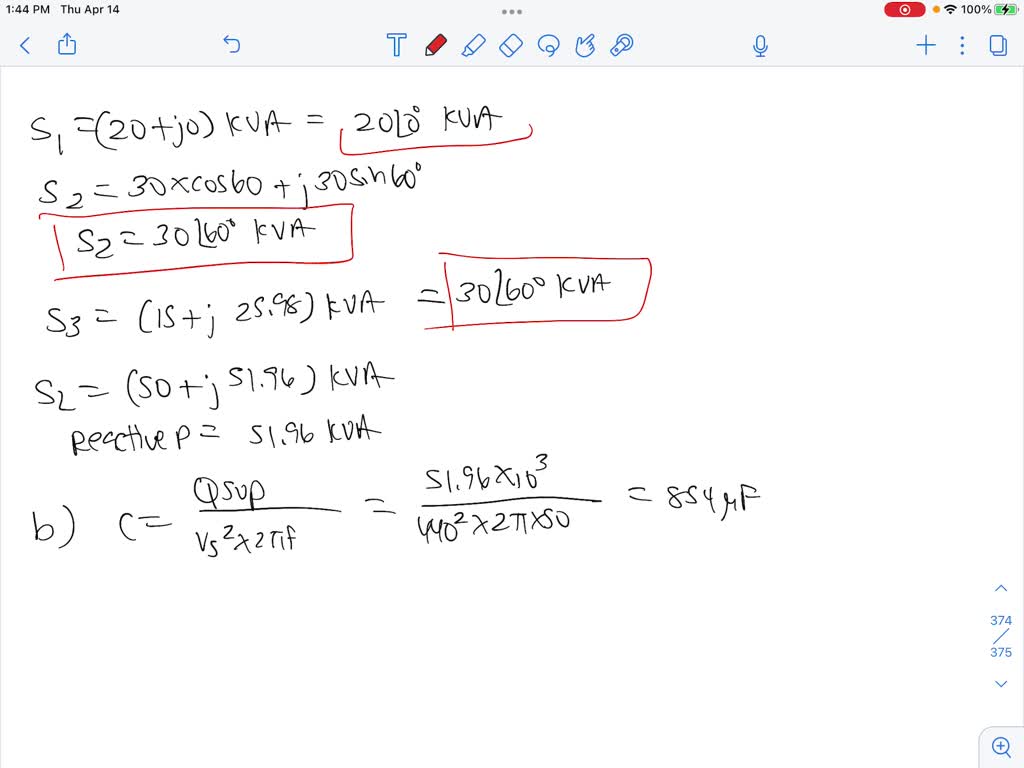 1:44 PM Thu Apr 14
100%
S₁ = (20+j0) KVA = 20∠0° KVA
S₂ = 30×cos60 + j30sin60°
S₂ = 30∠60° KVA
S₃ = (15+j 25.98) KVA = 30∠60° KVA
S₂ = (50+j 51.96) KVA
Reactive P = 51.96 KVA
b) C = Qsup / Vs²×2πf = 51.96×10³ / 440²×2π×50 = 854 μF
374
375